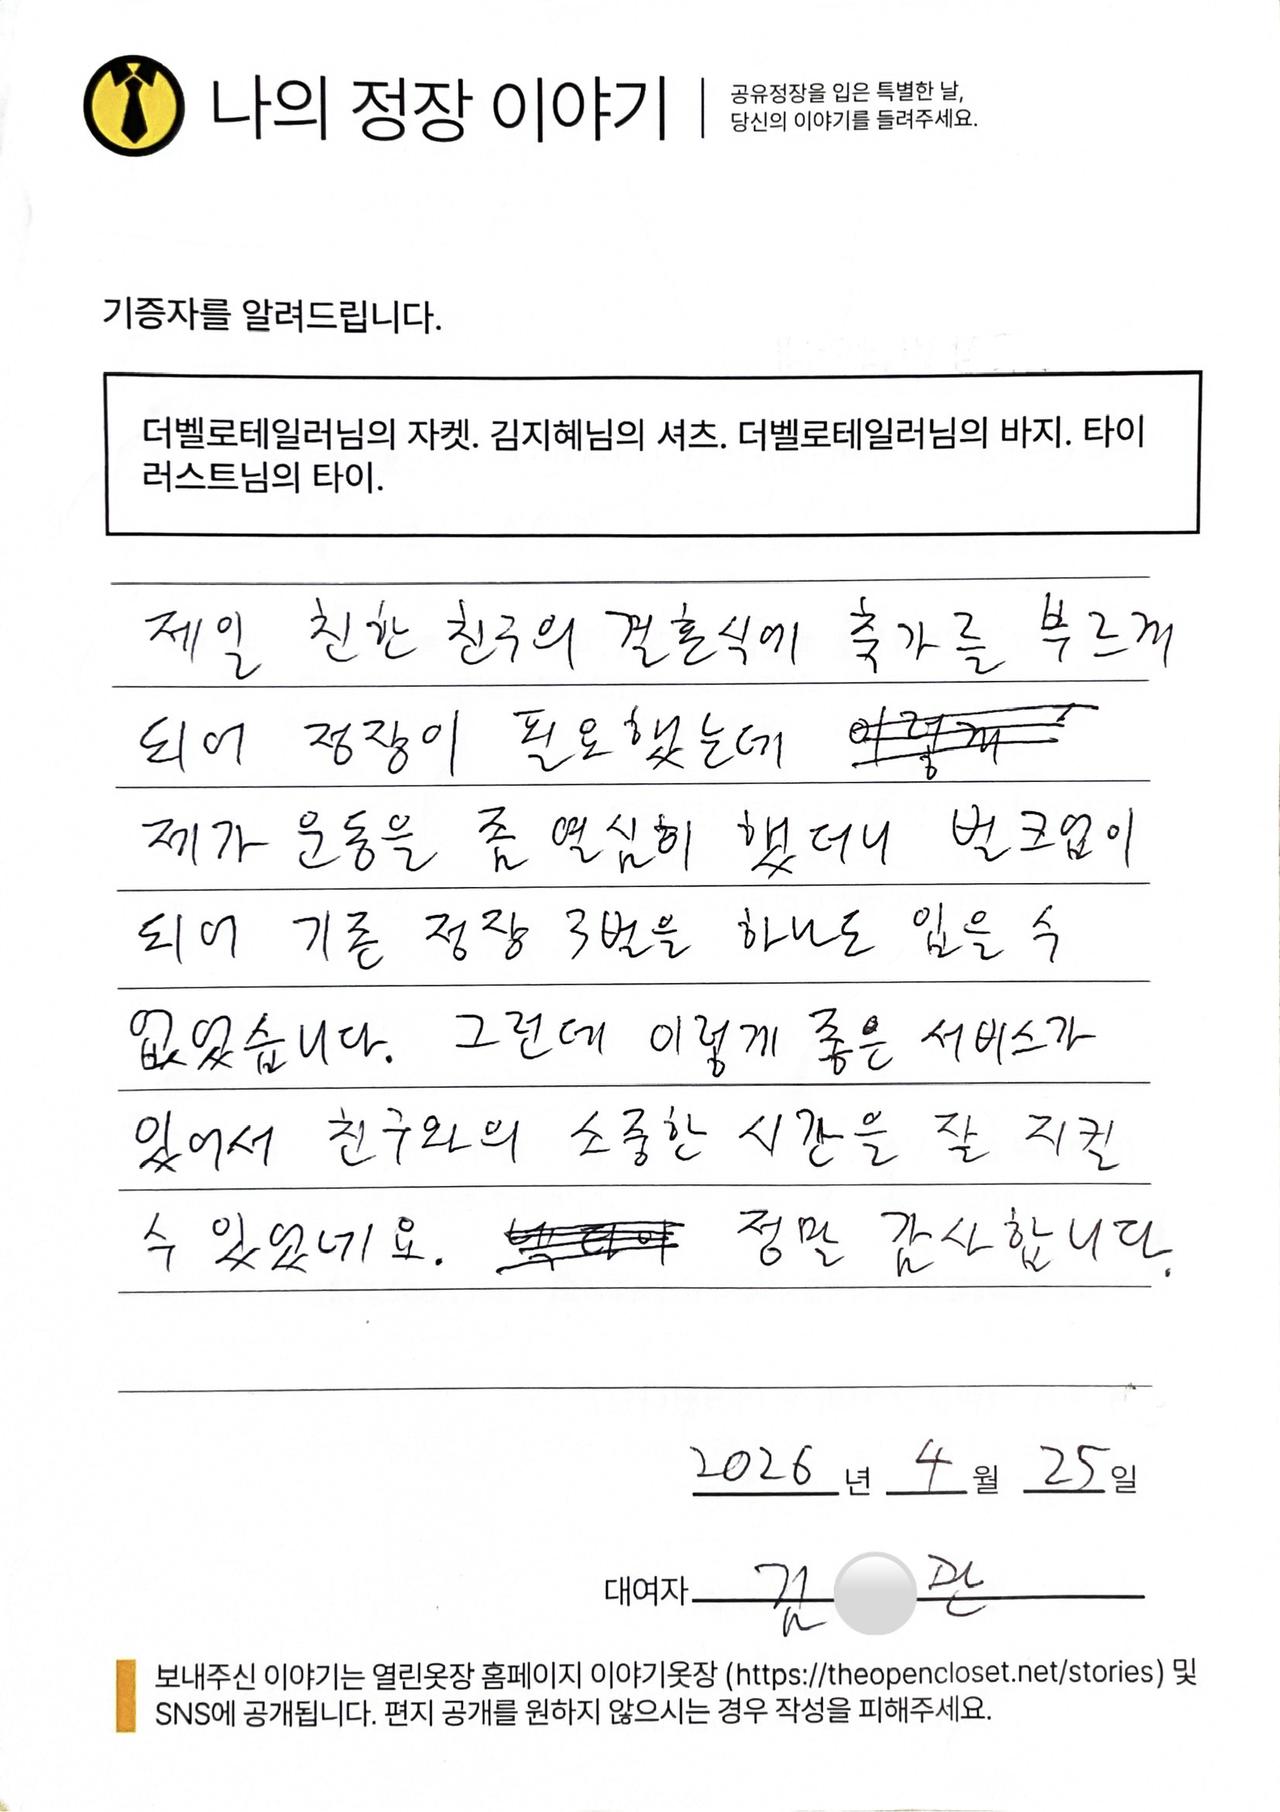 나의 정장 이야기
공유정장을 입은 특별한 날,
당신의 이야기를 들려주세요.
기증자를 알려드립니다.
더벨로테일러님의 자켓. 김지혜님의 셔츠. 더벨로테일러님의 바지. 타이
러스트님의 타이.
제일 친한 친구의 결혼식에 축가를 부르게
되어 정장이 필요했는데 이렇게
제가 운동을 좀 열심히 했더니 벌크업이
되어 기존 정장 3벌을 하나도 입을 수
없었습니다. 그런데 이렇게 좋은 서비스가
있어서 친구와의 소중한 시간을 잘 지킬
수 있었네요. 정말 감사합니다.
2026년 4월 25일
대여자 김 관
보내주신 이야기는 열린옷장 홈페이지 이야기옷장 (https://theopencloset.net/stories) 및
SNS에 공개됩니다. 편지 공개를 원하지 않으시는 경우 작성을 피해주세요.